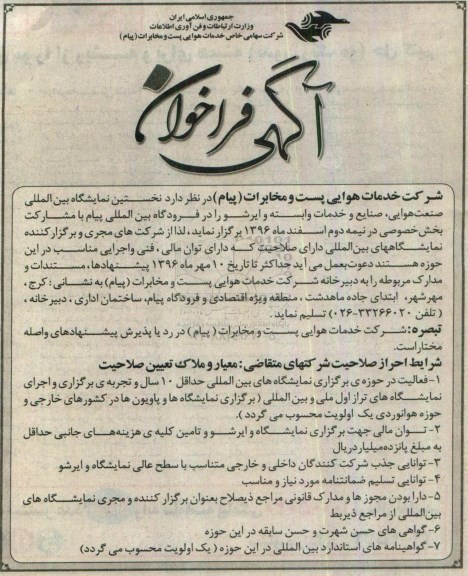 جمهوری اسلامی ایران
وزارت ارتباطات و فن آوری اطلاعات
شرکت سهامی خاص خدمات هوایی پست و مخابرات (پیام)
آگهی فراخوان
شرکت خدمات هوایی پست و مخابرات (پیام) در نظر دارد نخستین نمایشگاه بین المللی
صنعت هوایی، صنایع و خدمات وابسته و ایرشو را در فرودگاه بین المللی پیام با مشارکت
بخش خصوصی در نیمه دوم اسفند ماه ۱۳۹۶ برگزار نماید، لذا از شرکت های مجری و برگزار کننده
نمایشگاههای بین المللی دارای صلاحیت که دارای توان مالی، فنی و اجرایی مناسب در این
حوزه هستند دعوت بعمل می آید حداکثر تا تاریخ ۱۰ مهر ماه ۱۳۹۶ پیشنهادها، مستندات و
مدارک مربوطه را به دبیرخانه شرکت خدمات هوایی پست و مخابرات (پیام) به نشانی: کرج،
مهرشهر، ابتدای جاده ماهدشت، منطقه ویژه اقتصادی و فرودگاه پیام، ساختمان اداری، دبیرخانه،
(تلفن ۳۳۲۶۶۰۲۰-۰۲۶) تسلیم نماید.
تبصره: شرکت خدمات هوایی پست و مخابرات (پیام) در رد یا پذیرش پیشنهادهای واصله
مختار است.
شرایط احراز صلاحیت شرکتهای متقاضی: معیار و ملاک تعیین صلاحیت
۱- فعالیت در حوزه ی برگزاری نمایشگاه های بین المللی حداقل ۱۰ سال و تجربه ی برگزاری و اجرای
نمایشگاه های تراز اول ملی و بین المللی (برگزاری نمایشگاه ها و پاویون ها در کشورهای خارجی و
حوزه هوانوردی یک اولویت محسوب می گردد).
۲- توان مالی جهت برگزاری نمایشگاه و ایرشو و تامین کلیه ی هزینه های جانبی حداقل
به مبلغ پانزده میلیارد ریال
۳- توانایی جذب شرکت کنندگان داخلی و خارجی متناسب با سطح عالی نمایشگاه و ایرشو
۴- توانایی تسلیم ضمانتنامه مورد نیاز و مناسب
۵- دارا بودن مجوز ها و مدارک قانونی مراجع ذیصلاح بعنوان برگزار کننده و مجری نمایشگاه های
بین المللی از مراجع ذیربط
۶- گواهی های حسن شهرت و حسن سابقه در این حوزه
۷- گواهینامه های استاندارد بین المللی در این حوزه (یک اولویت محسوب می گردد)